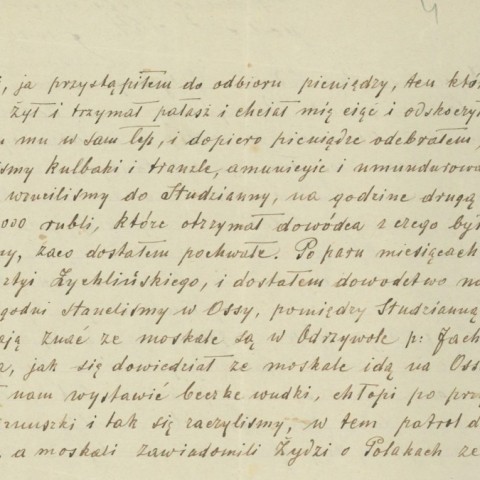 4
, ja przystąpiłem do odbioru pieniędzy, ten któr
żył i trzymał pałasz i chciał mię ciąć i odskoczy
mu w sam łep, i dopiero pieniądze odebrałem,
śmy kulbaki i tranzle, amunicyie i umundurowa
wrzuciliśmy do Studzianny, na godzine drugą
000 rubli, które otrzymał dowódca z czego był
ny, zaco dostałem pochwałe. Po paru miesiącach
rtyi Żychlińskiego, i dostałem dowodctwo na
godni staneliśmy w Ossy, pomiędzy Studzianną
ają znać ze moskale są w Odrzywole p: Jach
a, jak się dowiedział ze moskale idą na Oss
nam wystawić beczke wudki, chłopi po prz
rnuszki i tak się raczyliśmy, w tem patrol d
, a moskali zawiadomili Żydzi o Polakach ze